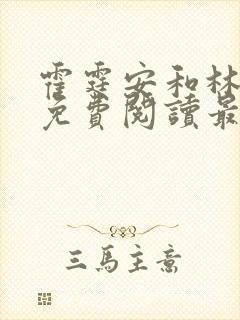 霍霆安和林
免費閱讀最
三馬主意